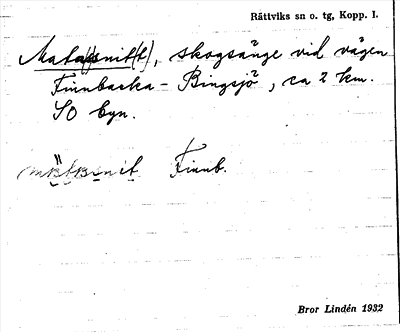 Rättviks sn o. tg, Kopp. l.
Mata(s)snit(t), skogsänge vid vägen
Finnbacka - Bingsjö, ca 2 km.
SO byn.
Finnb.
Bror Lindén 1932